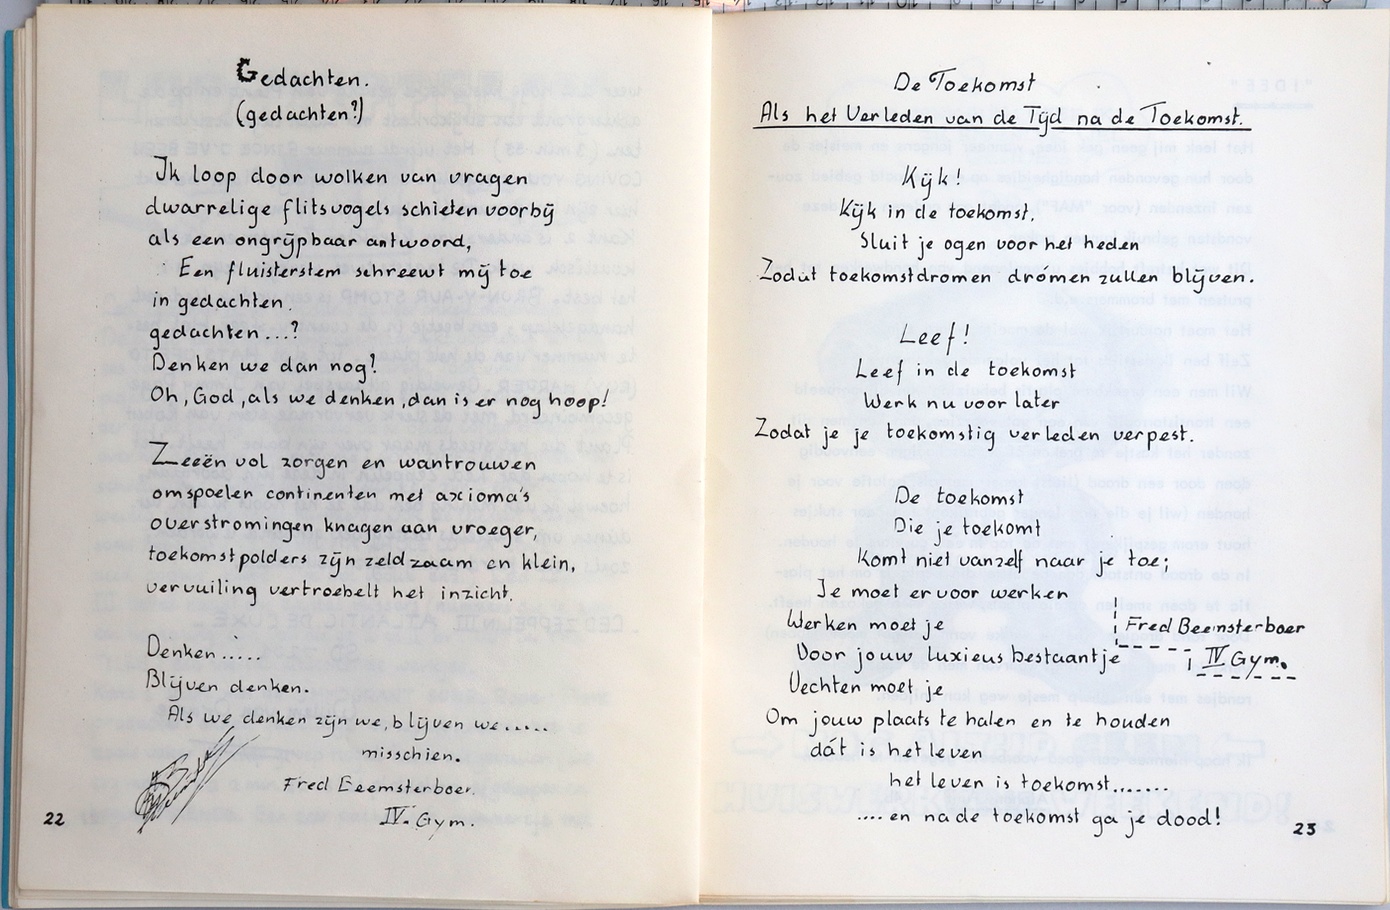 Gedachten.
(gedachten?)
Ik loop door wolken van vragen
dwarrelige flitsvogels schieten voorbij
als een ongrijpbaar antwoord,
Een fluisterstem schreewt mij toe
in gedachten.
gedachten...?
Denken we dan nog?
Oh, God, als we denken, dan is er nog hoop!
Zeeën vol zorgen en wantrouwen
omspoelen continenten met axioma's
overstromingen knagen aan vroeger,
toekomstpolders zijn zeldzaam en klein,
vervuiling vertroebelt het inzicht.
Denken.....
Blijven denken.
Als we denken zijn we, blijven we......
misschien.
Fred Beemsterboer.
IV. Gym.
22
De Toekomst
Als het Verleden van de Tijd na de Toekomst.
Kijk!
Kijk in de toekomst.
Sluit je ogen voor het heden
Zodat toekomstdromen drómen zullen blijven.
Leef!
Leef in de toekomst
Werk nu voor later
Zodat je je toekomstig verleden verpest.
De toekomst
Die je toekomt
Komt niet vanzelf naar je toe;
Je moet ervoor werken
Werken moet je
Voor jouw luxieus bestaantje
Vechten moet je
Om jouw plaats te halen en te houden
dát is het leven
het leven is toekomst.......
....en na de toekomst ga je dood!
Fred Beemsterboer
IV Gym.
23